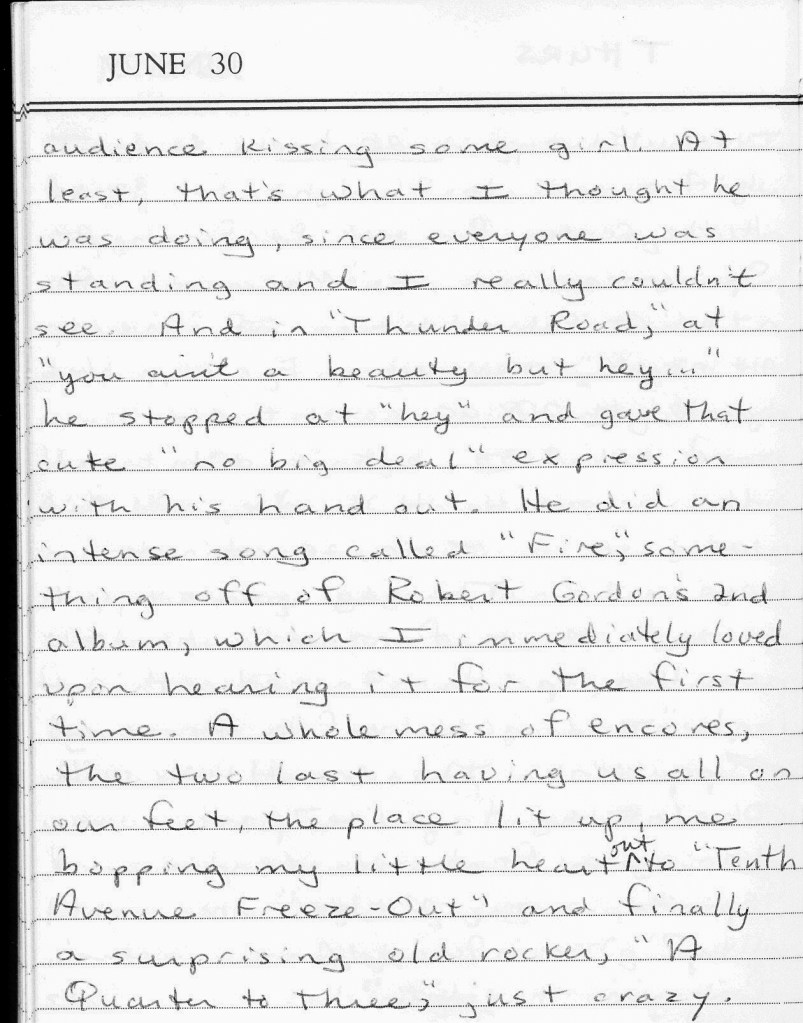 JUNE 30
audience kissing some girl. At
least, that's what I thought he
was doing, since everyone was
standing and I really couldn't
see. And in "Thunder Road," at
"you ain't a beauty but hey..."
he stopped at "hey" and gave that
cute "no big deal" expression
with his hand out. He did an
intense song called "Fire," some-
thing off of Robert Gordon's 2nd
album, which I immediately loved
upon hearing it for the first
time. A whole mess of encores,
the two last having us all on
our feet, the place lit up, me
bopping my little heart out to "Tenth
Avenue Freeze-Out" and finally
a surprising old rocker, "A
Quarter to Three," just crazy.